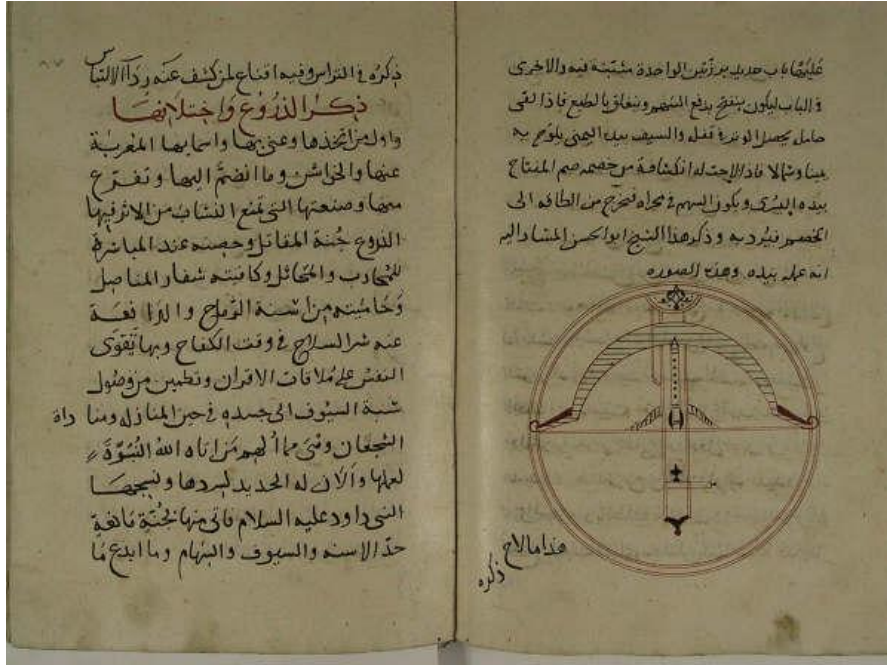 عليها باب حديد برزتين الواحدة مثبتة فيه والاخرى
في الباب ليكون ينفتح بدفع السهم وينغلق بالطبع فاذا لقى
حامل يحصل الوتر في قفل والسيف بيده اليمنى يلوح به
يمينا وشمالا فاذا لاحت له انكشافة من خصمه ضم المفتاح
بيده اليسرى ويكون السهم في مجراه فيخرج من الطاقه الى
الخصم فيرديه وذكر هذا الشيخ ابو الحسن المشار اليه
انه عمله بيده وهذه الصوره
هذا ما لاح
ذكره
ذكره في التراس وفيه اقناع لمن كشف عنه ردآ الالتباس
ذكر الدروع واختلافها
واول من اتخذها وعنى بها واسمايها المغربة
عنها والجواشن وما انضم اليها وتفرع
منها وصنعتها التي تمنع النشاب من الاثر فيها
الدروع جنة المقاتل وحصنه عند المباشرة
للمحارب والمخاتل وكافيته شفار المناصل
وحاميته من اسنة الرماح والدافعة
عنه شر السلاح في وقت الكفاح وبها تقوى
النفس على ملاقات الاقران وتطمين من وصول
شبة السيوف الى جسده في حين المنازله ومنا داة
الشجعان وهى مما ألهم من اتاه الله النبوة
لعملها وألان له الحديد لسردها ونسجها
النبي داود عليه السلام فاتى منها بجنة مانعة
حد الاسنه والسيوف والسهام وما ابدع ما